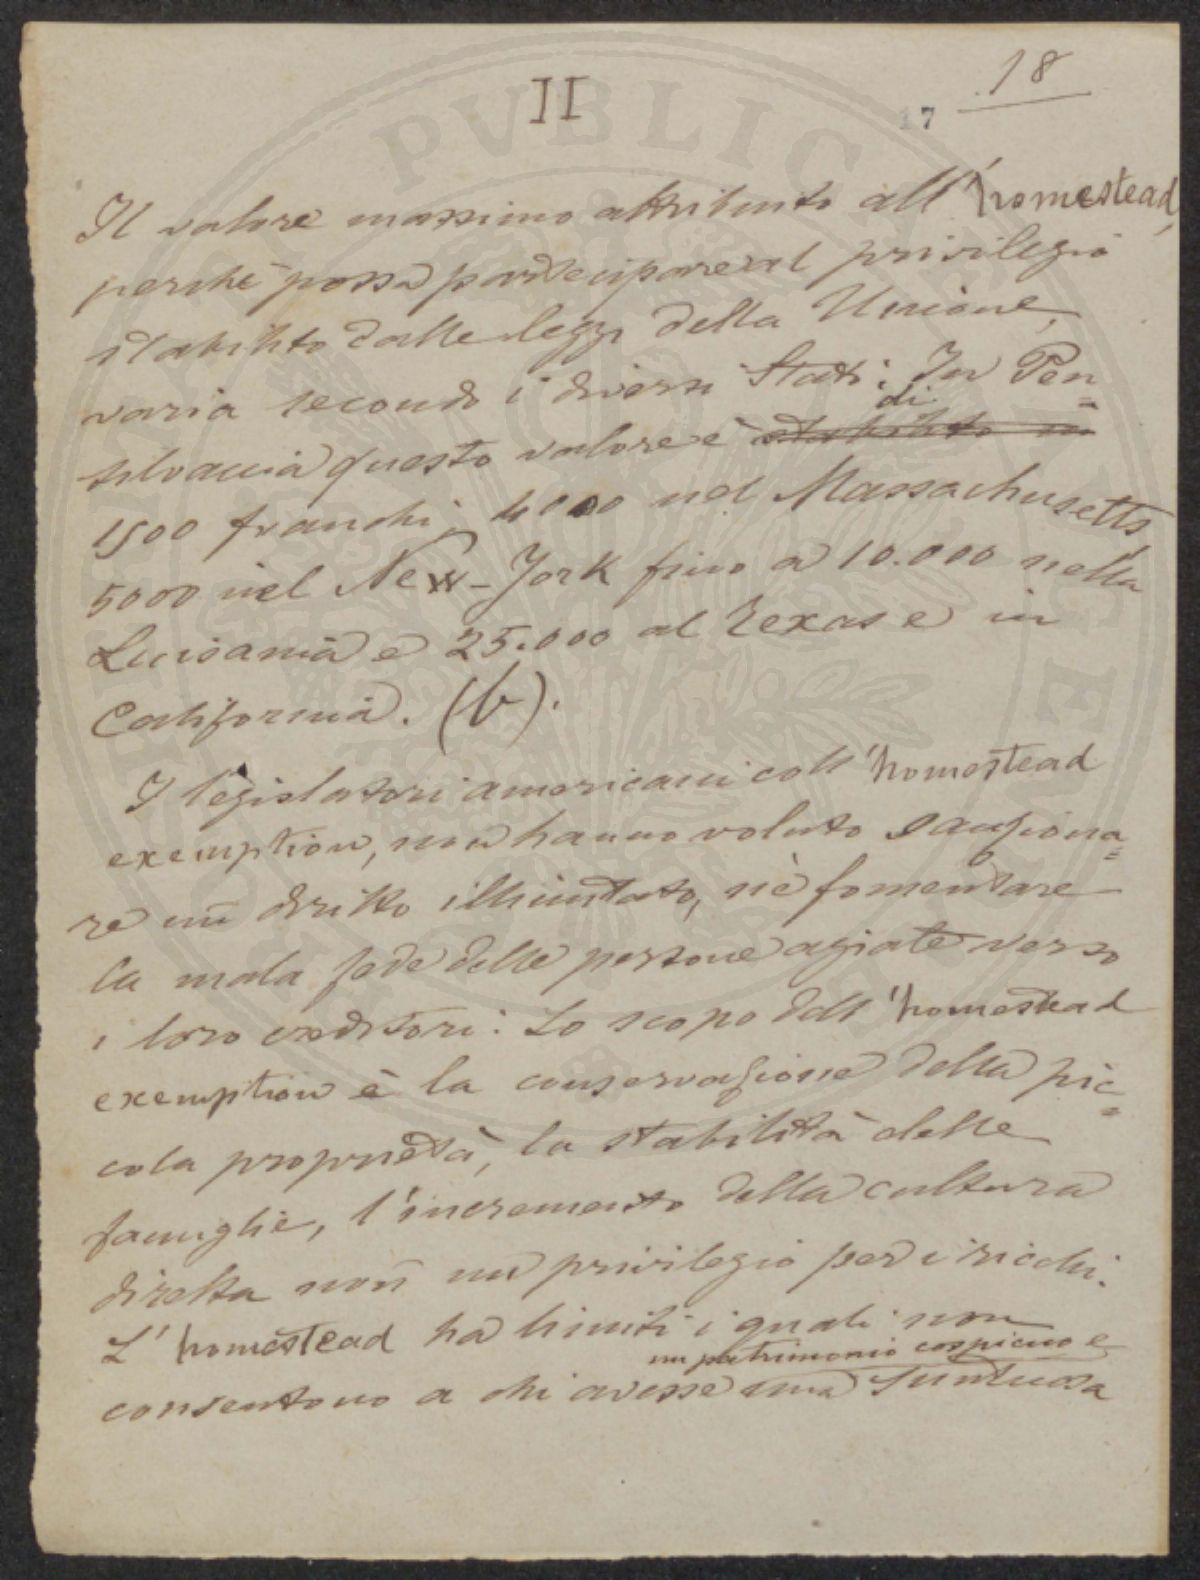 18
II
17
Il valore massimo attribuito all'homestead,
perchè possa partecipare al privilegio
stabilito dalle leggi della Unione,
varia secondo i diversi Stati: In Pen=
silvania questo valore è di stabilito in
1500 franchi, 4000 nel Massachusetts,
5000 nel New-York fino a 10.000 nella
Luisania e 25.000 al Texas e in
California. (b).
I legislatori americani coll'homestead
exemption, non hanno voluto sanziona=
re un diritto illimitato, nè fomentare
la mala fede delle persone agiate verso
i loro creditori: Lo scopo dell'homestead
exemption è la conservazione della pic=
cola proprietà, la stabilità delle
famiglie, l'incremento della cultura
diretta non un privilegio per i ricchi.
L'homestead ha limiti i quali non
un patrimonio cospicuo e
consentono a chi avesse una suntuosa